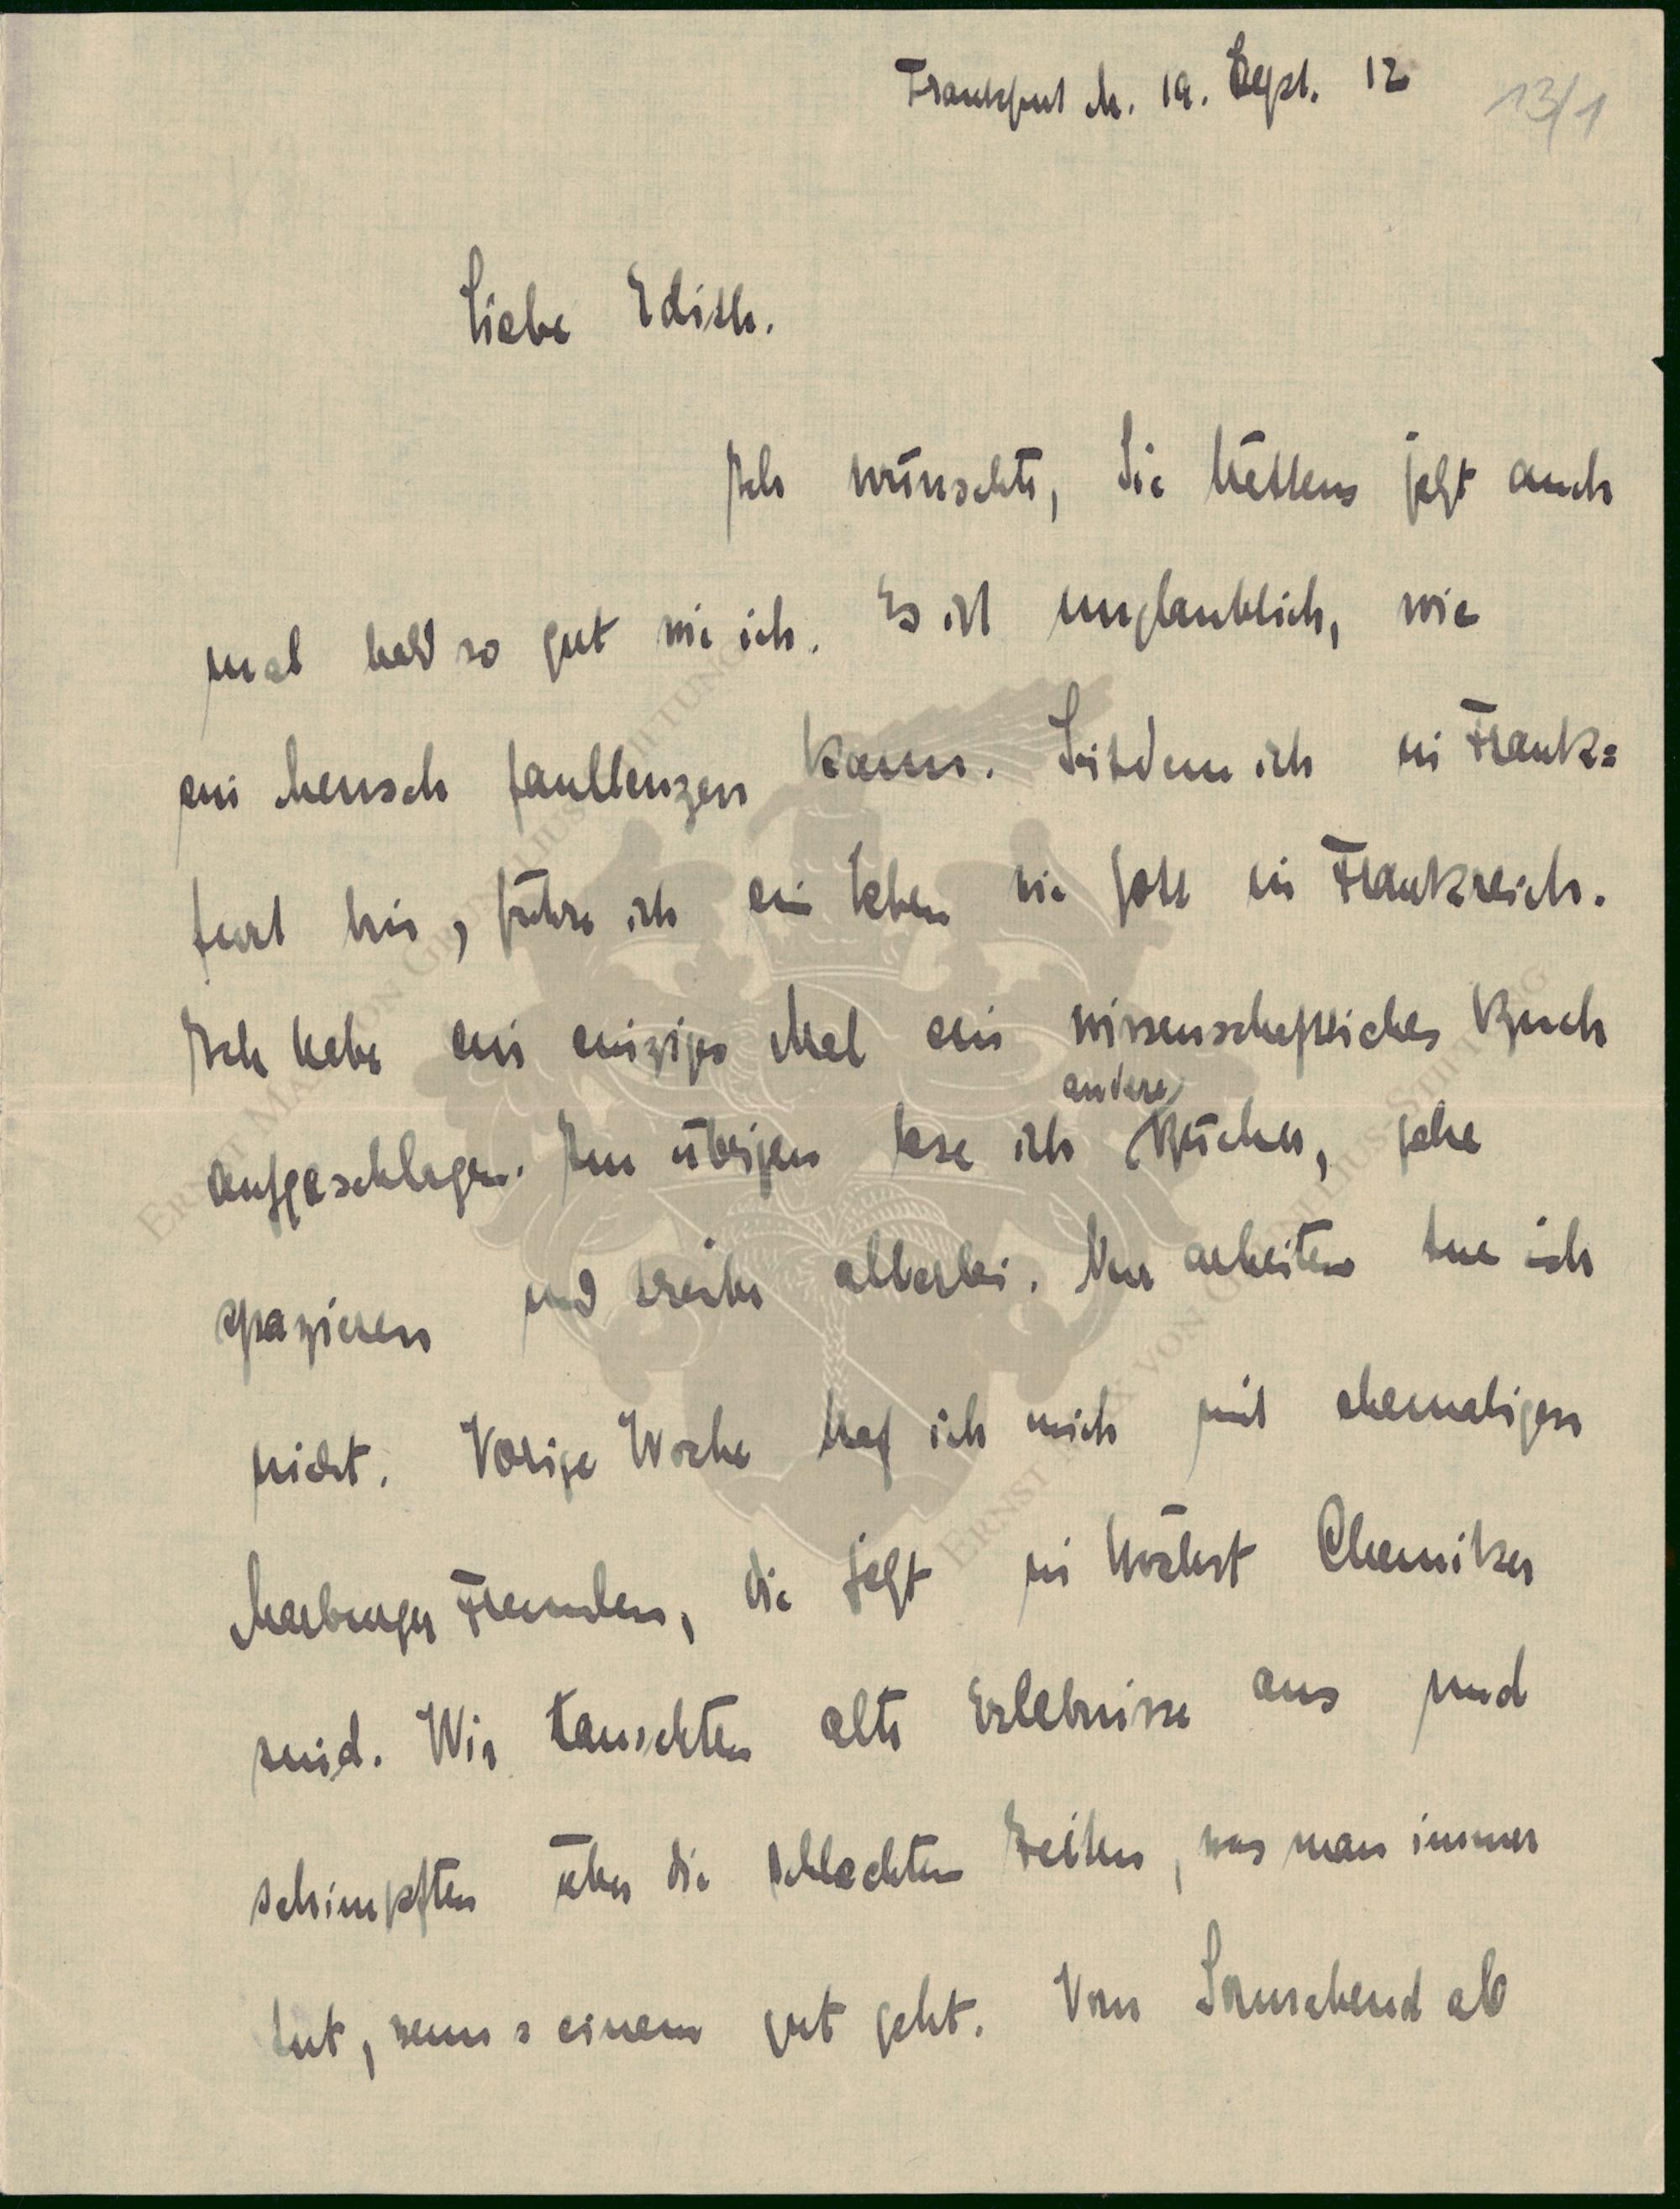 Frankfurt M. 19. Sept. 12
13/1
Liebe Edith.
Ich wünschte, Sie hättens jetzt auch
mal halb so gut wie ich. Es ist unglaublich, wie
ein Mensch faullenzen kann. Seitdem ich in Frank=
furt bin, führe ich ein Leben wie Gott in Frankreich.
Ich habe ein einziges Mal ein wissenschaftliches Buch
andere
aufgeschlagen. Im übrigen lese ich Bücher, gehe
spazieren und treibe allerlei. Nur arbeiten tue ich
nicht. Vorige Woche traf ich mich mit ehemaligen
Marburger Freunden, die jetzt in Höchst Chemiker
sind. Wir tauschten alte Erlebnisse aus und
schimpften über die schlechten Zeiten, was man immer
tut, wenns einem gut geht. Von Sonnabend ab
ERNST MAX VON GRUNELIUS-STIFTUNG
ERNST MAX VON GRUNELIUS-STIFTUNG